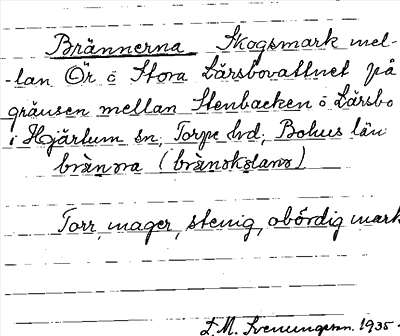 Brännerna Skogsmark mel-
-lan Ör o Stora Lärsbovattnet på
gränsen mellan Stenbacken o Lärsbo
i Hjärtum sn, Torpe hd, Bohus län
brànna (brànskslans)
Torr, mager, stenig, obördig mark
L.M. Svenungsson. 1935.